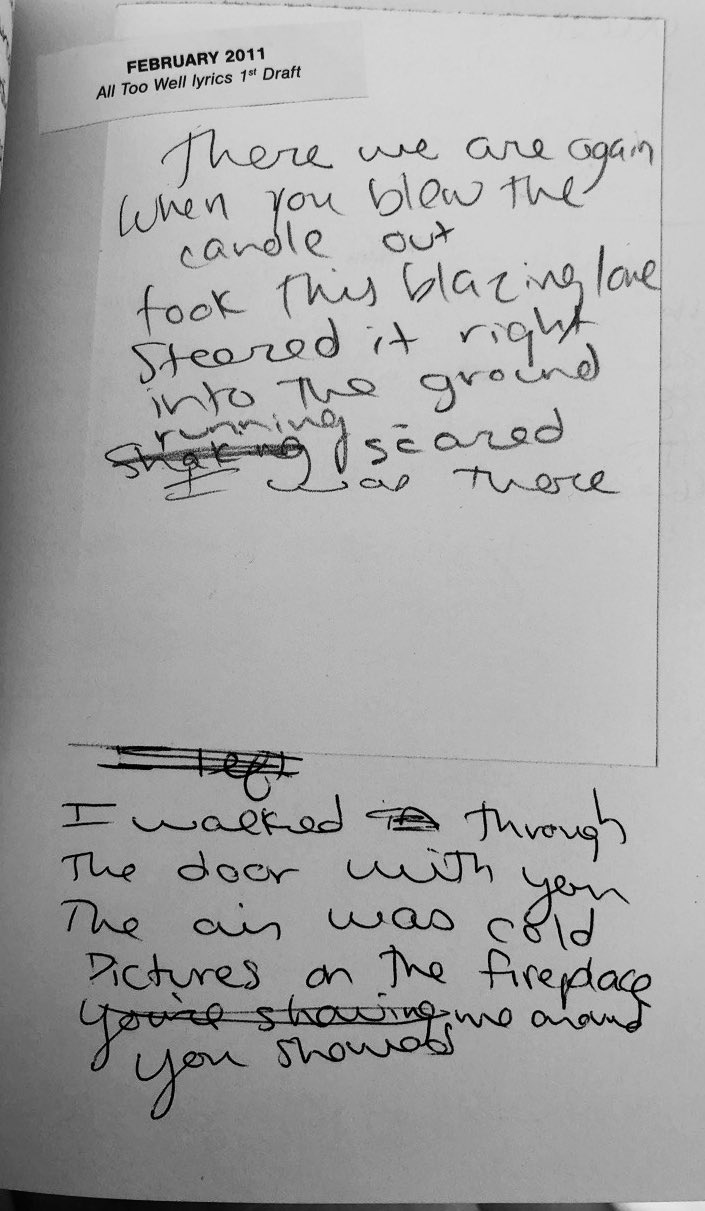 FEBRUARY 2011
All Too Well lyrics 1st Draft
There we are again
When you blew the
candle out
took this blazing love
Steered it right
into the ground
running
Shaking scared
I was there
left
I walked in through
The door with you
The air was cold
Pictures on the fireplace
You're showing me around
you showed